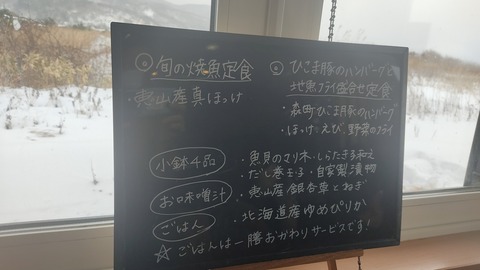 ① 旬の焼魚定食
・恵山産真ほっけ
② ひこま豚のハンバーグと
地魚フライ盛合せ定食
・森町ひこま豚のハンバーグ
・ほっけ、えび、野菜のフライ
小鉢4品
・魚貝のマリネ・しらたき
・だし巻玉子・自家製漬物
お味噌汁
・恵山産銀杏草とねぎ
ごはん
・北海道産ゆめぴりか
☆ ごはんは一膳おかわりサービスです!